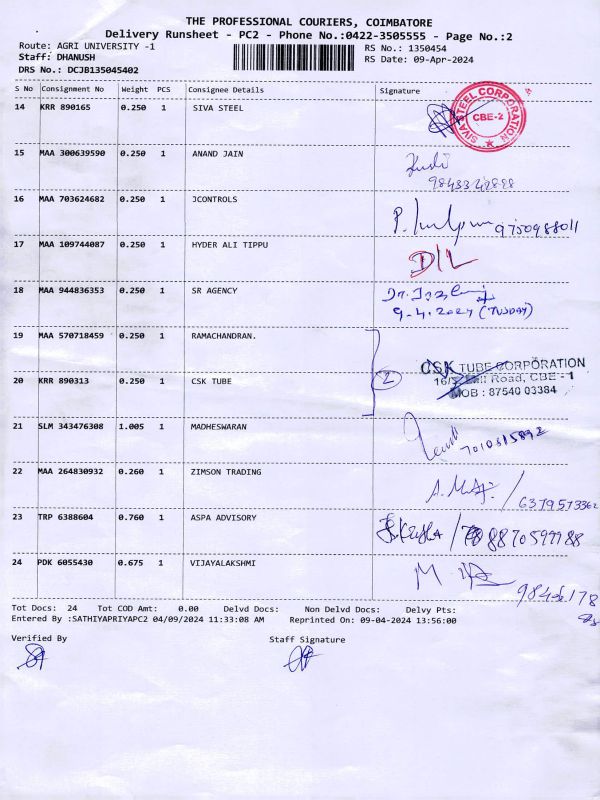 THE PROFESSIONAL COURIERS, COIMBATORE
Delivery Runsheet - PC2 - Phone No.:0422-3505555 - Page No.:2
Route: AGRI UNIVERSITY -1 RS No.: 1350454
Staff: DHANUSH RS Date: 09-Apr-2024
DRS No.: DCJB135045402
S No Consignment No Weight PCS Consignee Details Signature
14 KRR 890165 0.250 1 SIVA STEEL
SIVA STEEL CORPORATION
CBE-2
15 MAA 300639590 0.250 1 ANAND JAIN
16 MAA 703624682 0.250 1 JCONTROLS
9750988011
17 MAA 109744087 0.250 1 HYDER ALI TIPPU
D/L
18 MAA 944836353 0.250 1 SR AGENCY
9-4.2024 (TUSDAY)
19 MAA 570718459 0.250 1 RAMACHANDRAN.
20 KRR 890313 0.250 1 CSK TUBE
2
CSK TUBE CORPORATION
Road, CBE - 1
MOB : 87540 03384
21 SLM 343476308 1.005 1 MADHESWARAN
22 MAA 264830932 0.260 1 ZIMSON TRADING
6379573362
23 TRP 6388604 0.760 1 ASPA ADVISORY
8870599988
24 PDK 6055430 0.675 1 VIJAYALAKSHMI
Tot Docs: 24 Tot COD Amt: 0.00 Delvd Docs: Non Delvd Docs: Delvy Pts:
Entered By :SATHIYAPRIYAPC2 04/09/2024 11:33:08 AM Reprinted On: 09-04-2024 13:56:00
Verified By Staff Signature